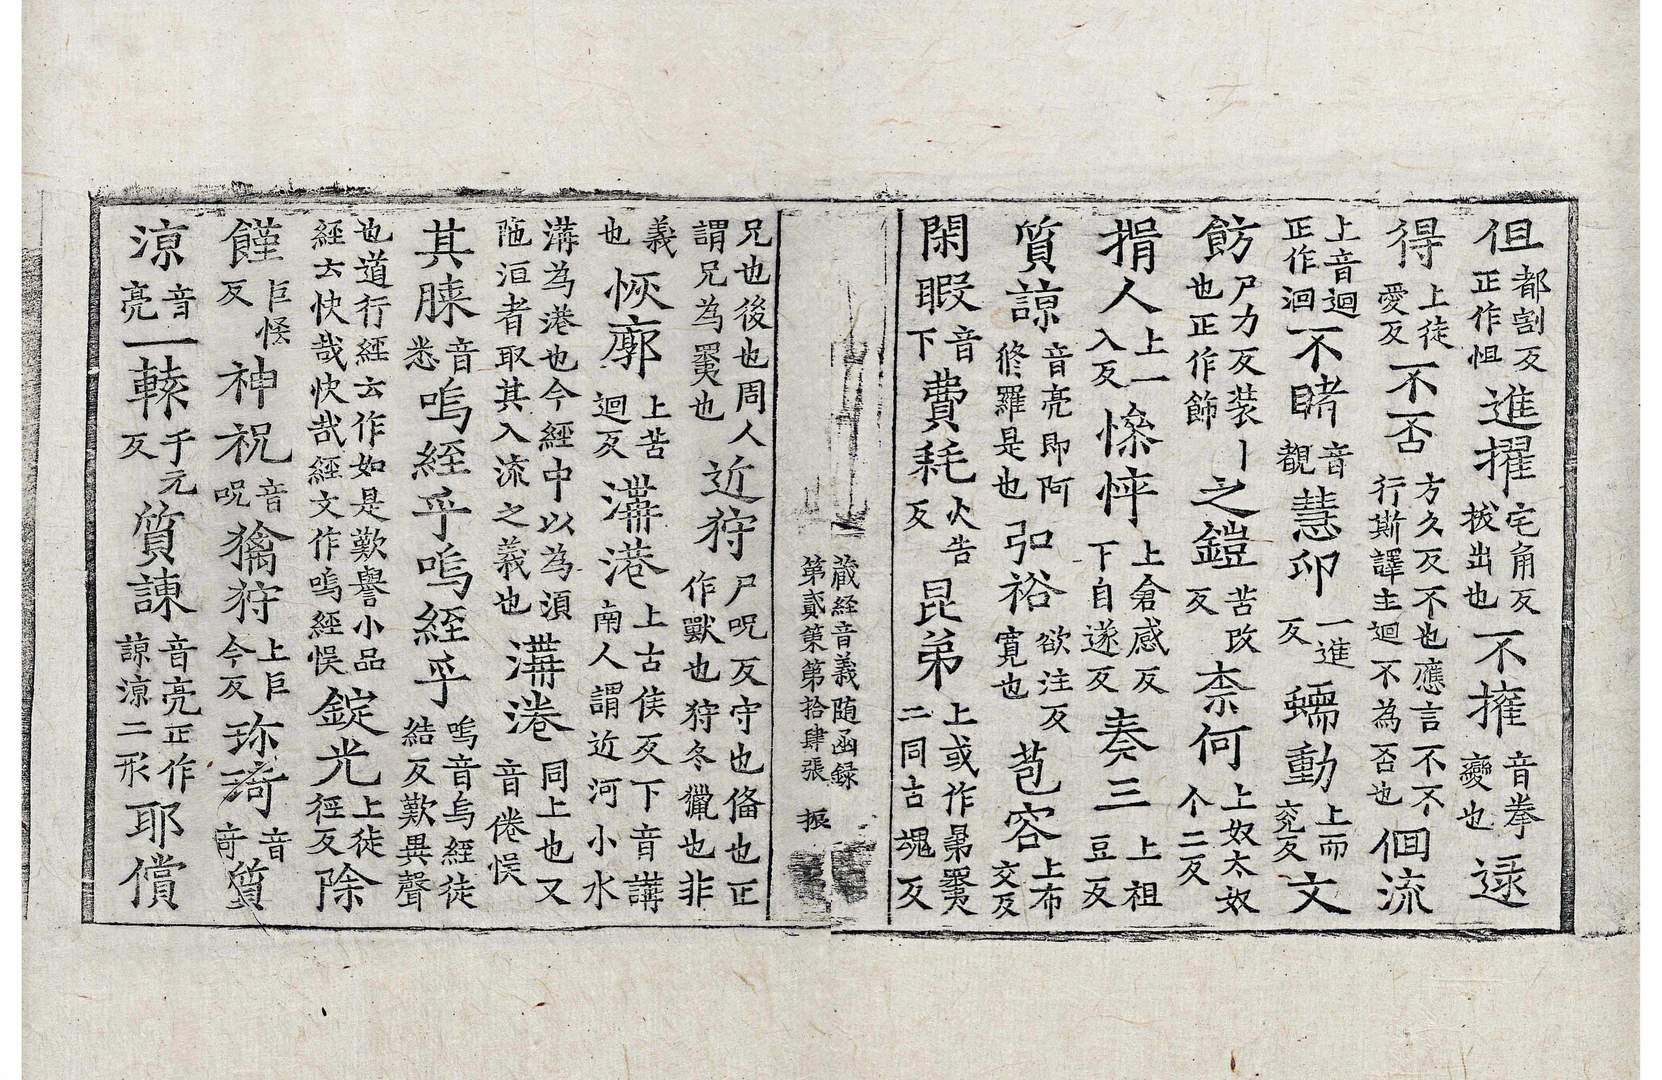 伹都割反正作怛進擢宅角反拔出也不擁音拳變也逯
得上徒愛反不否方久反不也應言不不行斯譯主迴不為否也佪流
上音迴正作洄不睹音覩慧印一進反蠕動上而兖反文
飭尸力反装丨也正作飾之鎧苦改反柰何上奴太奴个二反
揖人上一入反憏悴上倉感反下自遂反奏三上祖豆反
質諒音亮即阿修羅是也弘裕欲注反寬也苞容上布交反
閑暇音下費耗火告反昆弟上或作㬲𦌾二同古魂反
藏經音義随函録
第貳第第拾肆張　振
兄也後也周人謂兄為𦌾也近狩尸呪反守也俻也正作獸也狩冬獵也非
義也恢廓上苦迴反溝港上古侯反下音講南人謂近河小水
溝為港也今經中以為湏陁洹者取其入流之義也溝港同上也又音倦悮
其膝音悉嗚經乎嗚經乎嗚音烏經徒結反歎異聲
也道行經云作如是歎譽小品經云快哉快哉經文作嗚經悮錠光上徒徑反除
饉巨悋反神祝音呪擒狩上巨今反琜琦音奇質
涼音亮一𫐄千元反質諫音亮正作諒涼二形耶償